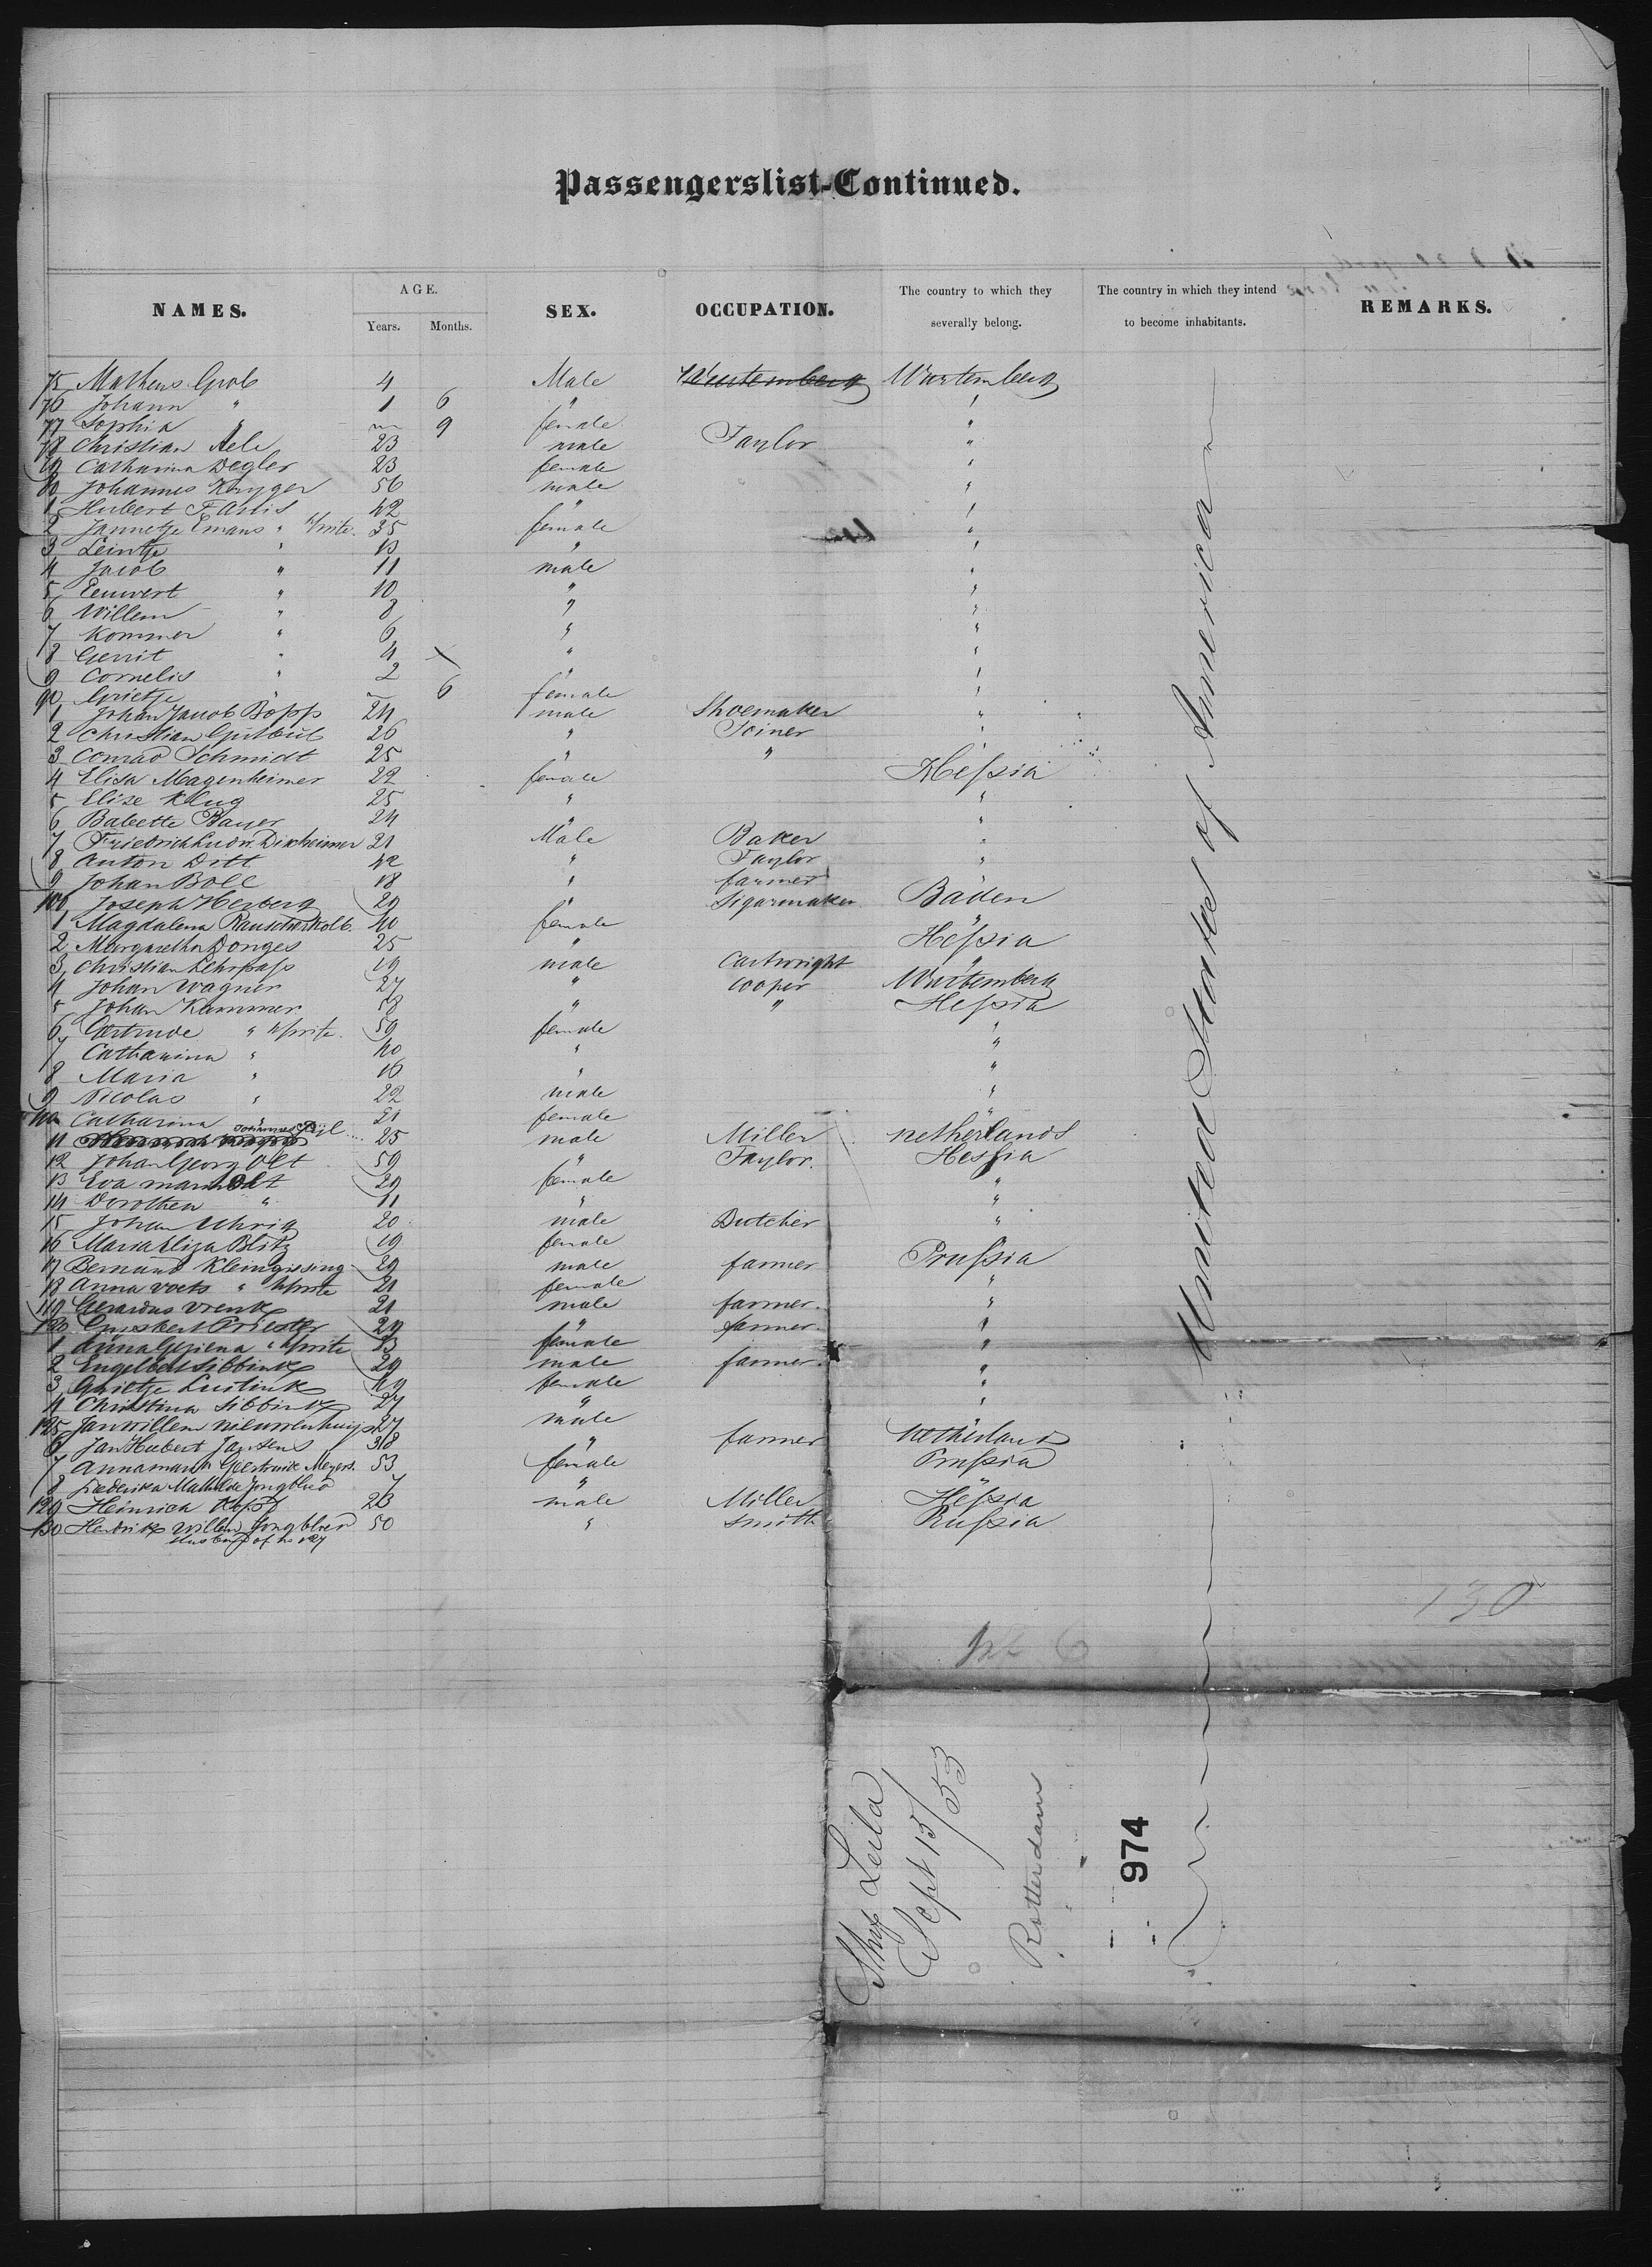 Passengerslist-Continued.
NAMES. AGE. Years. Months. SEX. OCCUPATION. The country to which they severally belong. The country in which they intend to become inhabitants. REMARKS.
75 Matheus Grob 4 Male Wurtemberg Wurtemberg
76 Johann " 1 6 " "
77 Sophia " 9 female "
78 Christian Aele 23 male Taylor "
79 Catharina Degler 23 female "
80 Johannes Kryger 56 male "
1 Hubert 42 " "
2 Jannetje Emans " 35 female "
3 Leintje " 13 " "
4 Jacob " 11 male "
5 Eeuwert " 10 " "
6 Willem " 8 " "
7 Kommer " 6 " "
8 Gerrit " 4 " "
9 Cornelis " 2 " "
90 Grietje 6 female "
1 Johan Jacob Bopp 24 male Shoemaker "
2 Christian 26 " Joiner "
3 Conrad Schmidt 25 " "
4 Elisa Magenheimer 22 female Hessia
5 Elise Klug 25 " "
6 Babette Bayer 24 " "
7 Friedrich Ludw. Dikheimer 21 Male Baker "
8 Anton Ditt 42 " Taylor "
9 Johan Boll 18 " farmer
100 Joseph Herberg 29 " Sigarmaker Baden
1 Magdalena 40 female
2 Margaretha Donges 25 " Hessia
3 Christian 19 male Cartwright "
4 Johan Wagner 27 " Cooper Wurtemberg
5 Johan Kammer 58 " " Hessia
6 Gertrude " 59 female "
7 Catharina " 40 " "
8 Maria " 16 " "
9 Nicolas " 22 male "
110 Catharina 21 female
11 Johannes 25 male Miller Netherlands
12 Johan Georg Olt 59 " Taylor. Hessia
13 Eva Maria Olt 29 female "
14 Dorothea " 11 " "
15 Johan Uhrig 20 male Butcher "
16 Maria Eliza Blitz 19 female
17 Bernard Kleingissing 29 male farmer Prussia
18 Anna Voets " 21 female "
119 Gerardus Vrenk 21 male farmer. "
120 Gysbert Priester 29 " farmer. "
1 Anna Geziena " 13 female "
2 Engelbert Sibbink 29 male farmer. "
3 Grietje Luitink 49 female "
4 Christina Sibbink 27 " "
125 Jan Willem Nieuwenhuijs 27 male
6 Jan Hubert Jansens 38 " farmer Netherlands
7 Anna Maria Geertruide Meyers. 53 female Prussia
8 Frederika Mathilde Jongblud 7 "
129 Heinrich Kopf 23 male Miller Hessia
130 Hendrik Willem Jongbloed 50 " Smith Russia
Husband of No 127
United States of America
130
Ship Leila
Sept 15/53
Rotterdam
974